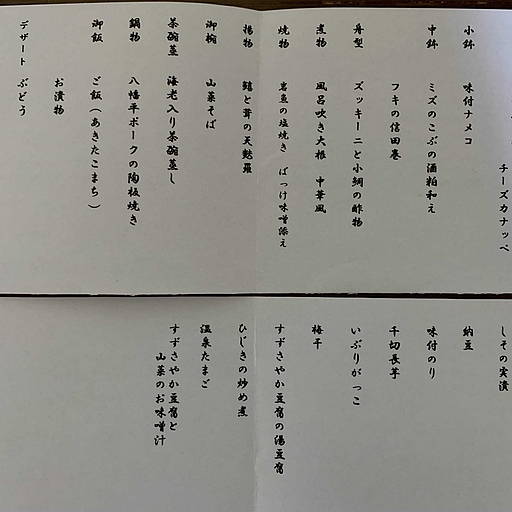 チーズカナッペ
小鉢 味付ナメコ
中鉢 ミズのこぶの酒粕和え
フキの信田巻
舟型 ズッキーニと小鯛の酢物
煮物 風呂吹き大根 中華風
焼物 岩魚の塩焼き ばっけ味噌添え
揚物 鱚と茸の天麩羅
御椀 山菜そば
茶碗蒸 海老入り茶碗蒸し
鍋物 八幡平ポークの陶板焼き
御飯 ご飯(あきたこまち)
お漬物
デザート ぶどう
しその実漬
納豆
味付のり
千切長芋
いぶりがっこ
梅干
すずさやか豆腐の湯豆腐
ひじきの炒め煮
温泉たまご
すずさやか豆腐と
山菜のお味噌汁